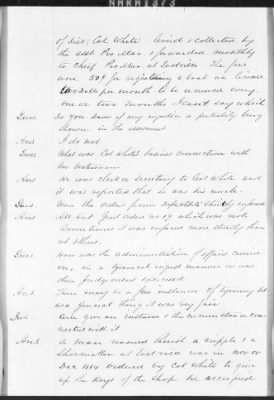 of Dist (Col White) fixed & collected by
the asst Pro Mar & forwarded monthly
to Chief Pro Mar at Eastville The fees
were 50¢ for registering a boat on license
2 Dolls per month to be renewed every
one or two months I cant say which
Ques Do you know of any injustice or partiality being
shown in the assessment
Ans I do not
Ques What was Col White's business connection with
the
Ans He was clerk or Secretary to Col White and
it was reported that he was his uncle
Ques Were the orders from strictly enforced
Ans All but Genl orders no 19 which was not
Sometimes it was enforced more strictly than
at others
Ques How was the administration of affairs carried
on, in a tyranical unjust manner or was
there Judgement exercised
Ans There may be a few instances of tyranny but
as a general thing it was very fair
Ques Can give an instance & the circumstances con
nected with it
Ans A man named a cripple & a
Shoemaker at Eastville was in Nov or
Dec 1864 ordered by Col White to give
up the keys of the shop he occupied